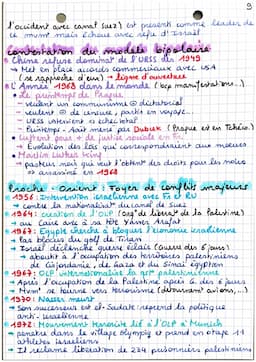 9
l'occident avec canal (suez) est présent comme leader de
ce mvmt mais échoue avec refus d'Israël
Contestation du modèle bipolaire
Chine refuse dominat° de l'URSS dès 1949
→ Met en place accords commerciaux avec USA
(se rapproche d'eux) → ligne d'ouverture
L'Année 1968 dans le monde (bcp manifestations..)
Le printemps de Prague
- veulent un communisme dictatorial
- veulent de censure, partis en voyage..
- URSS intervient et
- Printemps - Août menés par Dubek (Prague est en Tchéco.)
Luttent pour + de justice sociale en Fr
→ Évolution des lois qui correspondraient aux mœurs
Martin Luther King
→ pasteur mais qui veut l'obtent° des droits pour les noirs
↔ assassiné en 1968
Proche-Orient : Foyer de conflits majeurs
1956 : Intervention israélienne avec Fr et RU
→ contre la nationalisat° du canal de Suez
1964 : création de l'OLP (orga° de libérat° de la Palestine)
→ au Caire avec à sa tête Yasser Arafat
1967 : Egypte cherche à bloquer l'économie israélienne
→ pas blocus du golf de Tiran
→ Israël déclenche guerre éclair (Guerre des 6 jours)
→ aboutit à l'occupation des territoires palestiniens
de Cisjordanie, de Gaza et du Sinaï égyptien
1967 : OLP internationalise la q° palestinienne
→ Après l'occupation de la Palestine après G. des 6 jours
→ Mvmt se tourne vers terrorisme (détournement avions,...)
1970 : Nasser meurt
→ Son successeur el-Sadate reprend la politique
anti-israélienne
1972 : Mouvement terroriste lié à l'OLP à Munich
→ pénètre dans le village olympiq et prend en otage 11
athlètes israéliens
→ Il réclame libération de 234 prisonniers palestiniens